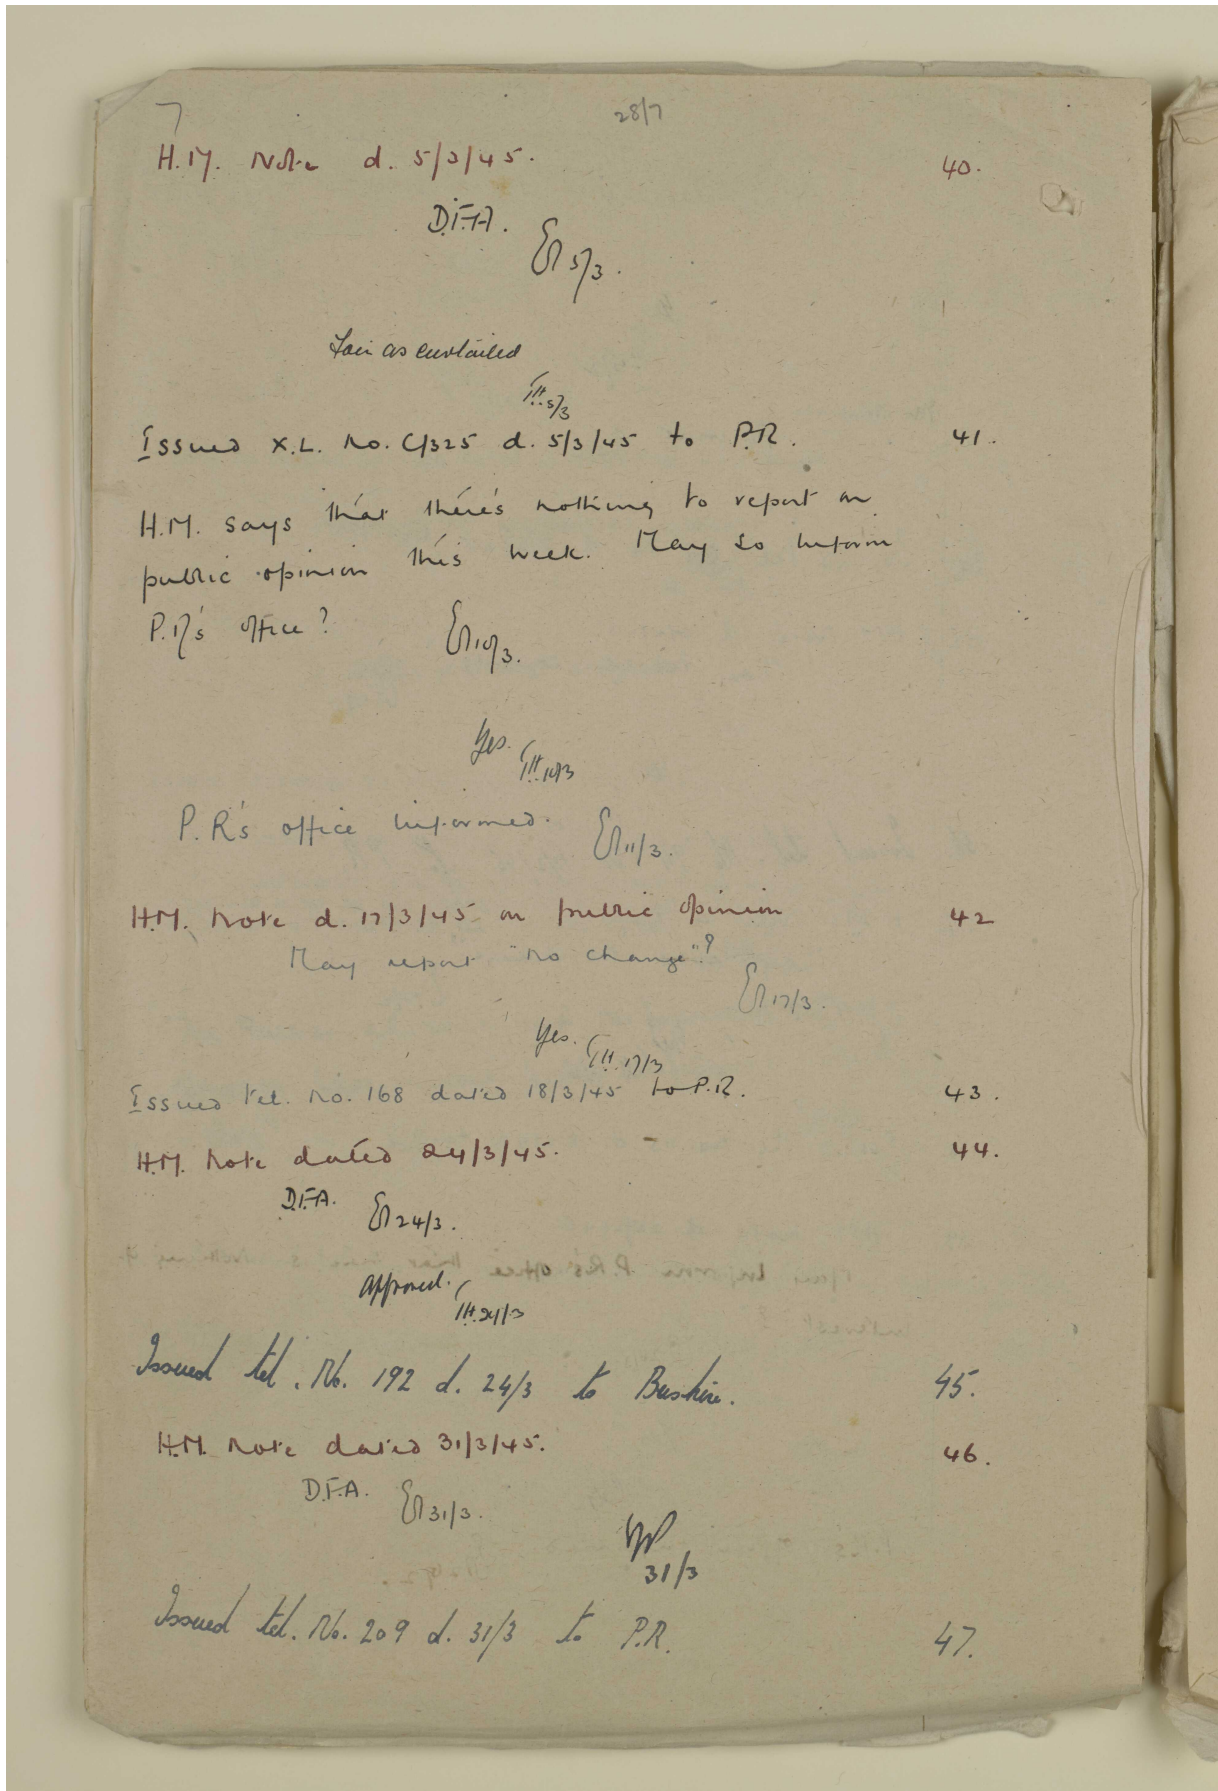 7
28/7
H.M. Note d. 5/3/45. 40.
D.F.A.
5/3.
Fair as curtailed
5/3
Issued X.L. No. C/325 d. 5/3/45 to P.R. 41.
H.M. says that there's nothing to report on
public opinion this week. May so inform
P.R's office?
10/3.
Yes.
10/3
P.R's office informed.
11/3.
H.M. Note d. 17/3/45 on public opinion 42
May report "no change"?
17/3.
Yes.
17/3
Issued tel. No. 168 dated 18/3/45 to P.R. 43.
H.M. Note dated 24/3/45. 44.
D.F.A.
24/3.
Approved.
24/3
Issued tel. No. 192 d. 24/3 to Bushire. 45.
H.M. Note dated 31/3/45. 46.
D.F.A.
31/3.
31/3
Issued tel. No. 209 d. 31/3 to P.R. 47.